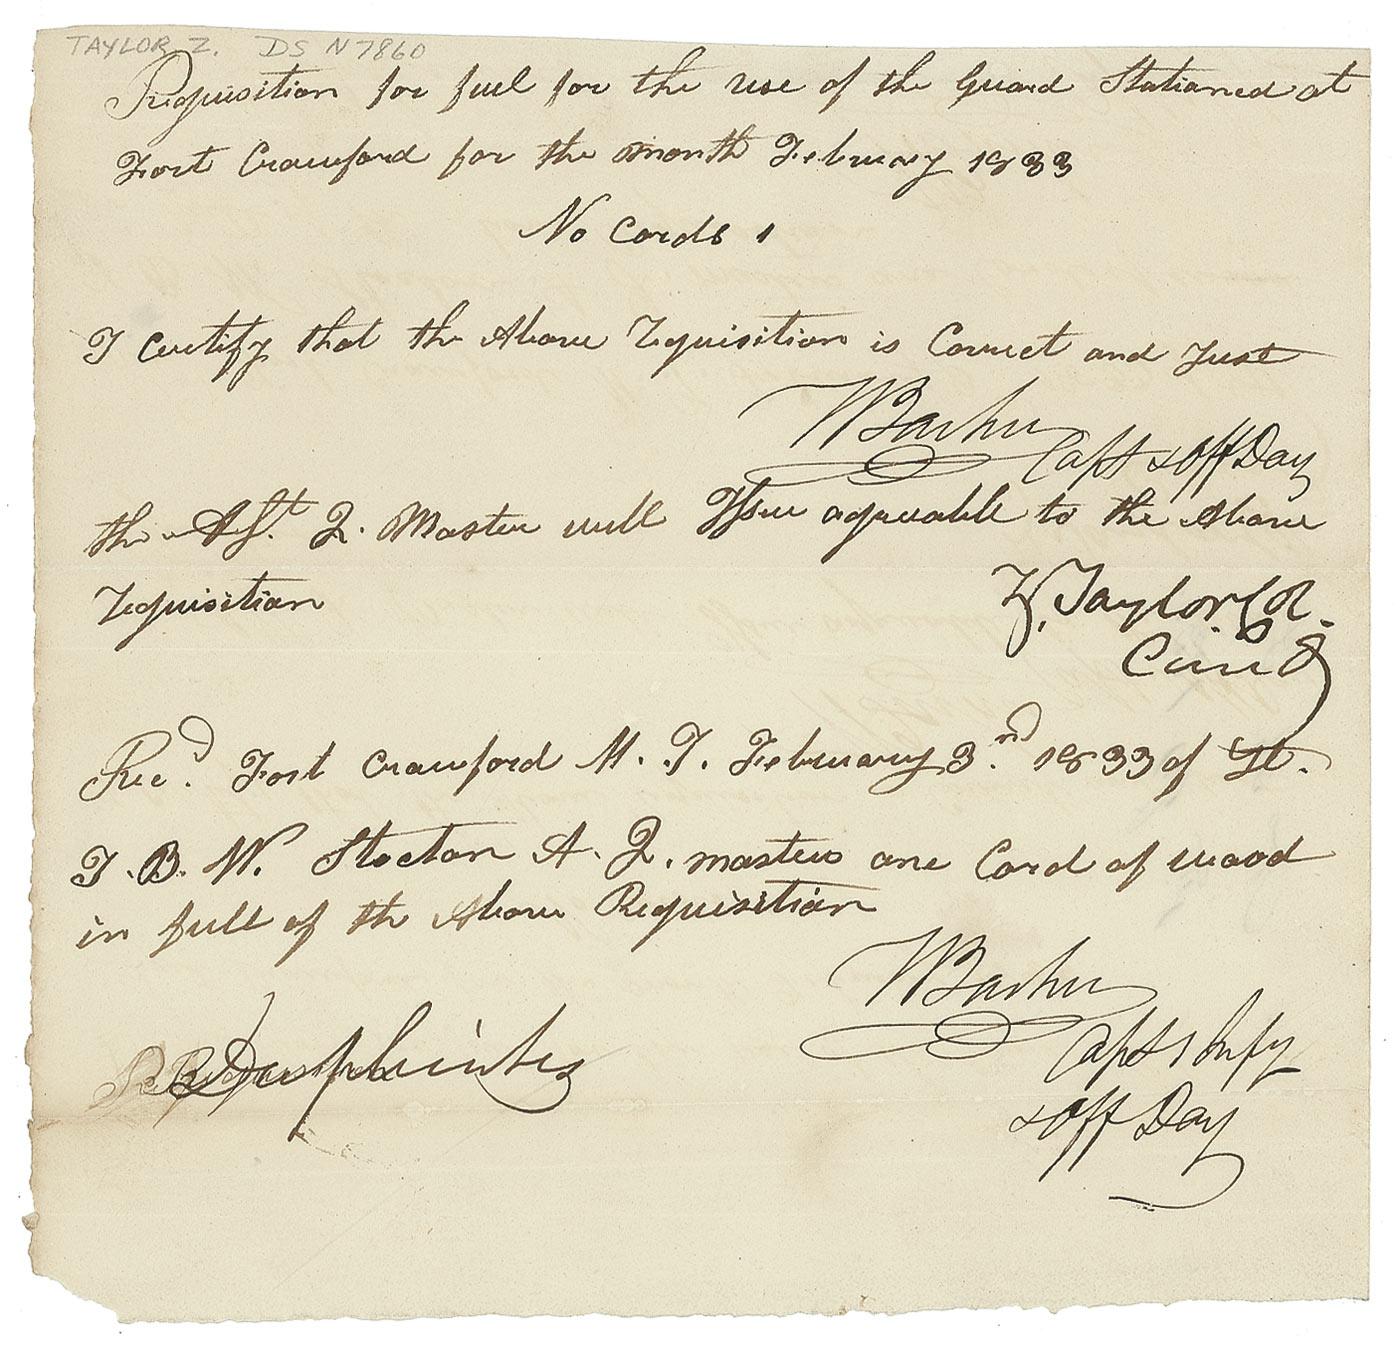 TAYLOR Z. DS N7860
Requisition for fuel for the use of the Guard Stationed at
Fort Crawford for the month February 1833
No Cords 1
I certify that the Above requisition is Correct and Just
WBarker
Capt & Off Day
the Ast. Q. Master will Issue agreeable to the Above
requisition
Z. Taylor Col.
Comd
Recd. Fort Crawford M. T. February 3rd. 1833 of Lt.
T. B. W. Stocton A. Q. masters one Cord of wood
in full of the Above Requisition
WBarker
Capt 1 Infy
& Off Day